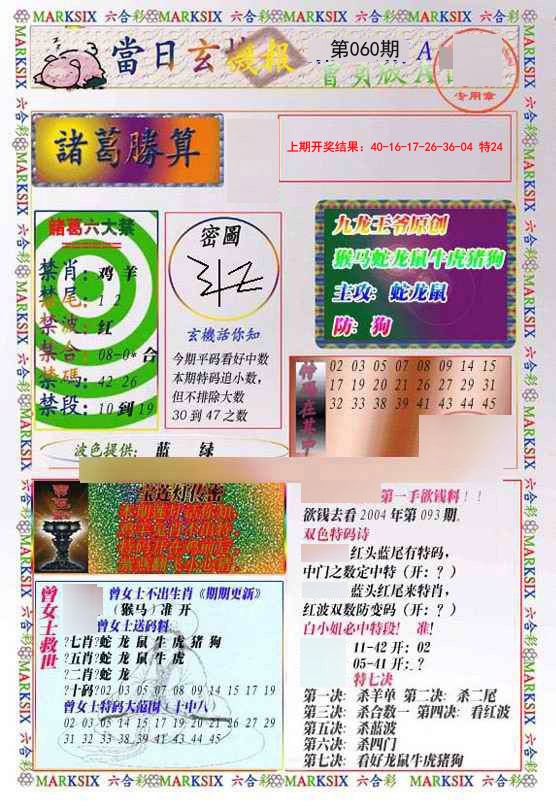 MARKSIX 六合彩 MARKSIX 六合彩 MARKSIX 六合彩 MARKSIX 六合彩 MARKSIX
當日玄機报
第060期
专用章
諸葛勝算
上期开奖结果：40-16-17-26-36-04 特24
諸葛六大禁
禁肖：鸡 羊
禁尾：1 2
禁波：红
禁合：08-0* 合
禁碼：42 26
禁段：10 到 19
密圖
玄機话你知
今期平码看好中数
本期特码追小数，
但不排除大数
30 到 47 之数
九龙王爷原创
猴马蛇龙鼠牛虎猪狗
主攻：蛇龙鼠
防：狗
02 03 05 07 08 09 14 15
17 19 20 21 26 27 29 31
32 33 38 39 41 43 44 45
波色提供：蓝 绿
宝莲灯传密
曾女士救世
曾女士不出生肖《期期更新》
（猴马）准 开
曾女士送码料：
?七肖?蛇 龙 鼠 牛 虎 猪 狗
?五肖?蛇 龙 鼠 牛 虎
?二肖?蛇 龙
?十码?02 03 05 07 08 09 14 15 17 19
曾女士特码大范围（十中八）
02 03 05 14 15 17 19 20 21 26 27 29
31 32 33 38 39 41 43 44 45
第一手欲钱料！！
欲钱去看 2004 年第 093 期.
双色特码诗
红头蓝尾有特码，
中门之数定中特（开：？）
蓝头红尾来特肖，
红波双数防变码（开：？）
白小姐必中特段！ 准！
11-42 开：02
05-41 开：?
特七决
第一决：杀羊单 第二决：杀二尾
第三决：杀合数一 第四决：看红波
第五决：杀蓝波
第六决：杀四门
第七决：看好龙鼠牛虎猪狗
MARKSIX 六合彩 MARKSIX 六合彩 MARKSIX 六合彩 MARKSIX 六合彩 MARKSIX